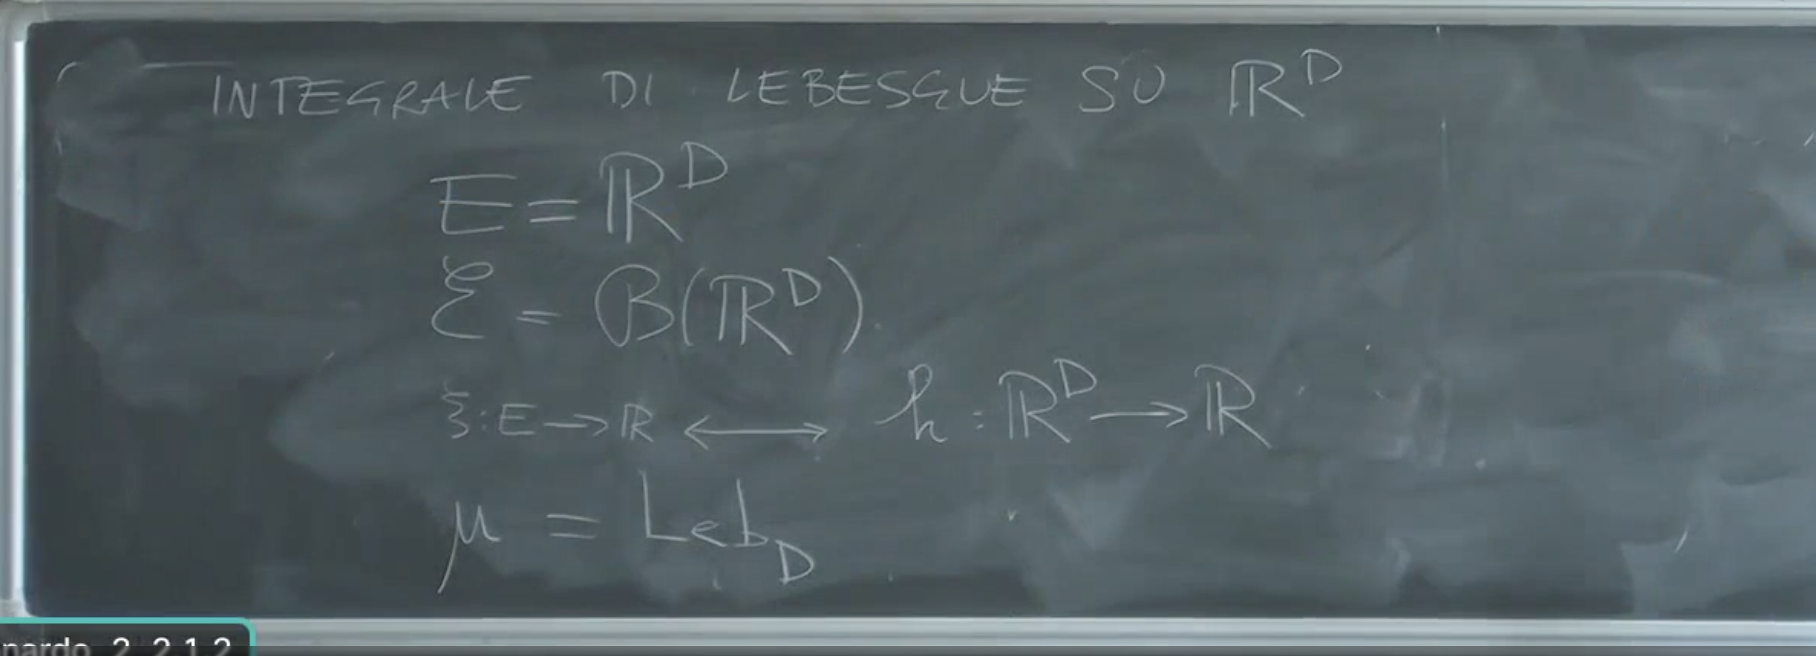 INTEGRALE DI LEBESGUE SU ℝ^D
E = ℝ^D
ℰ = ℬ(ℝ^D).
ξ: E → ℝ ⟷ h: ℝ^D → ℝ
μ = Leb_D
nardo 2 2.1.2